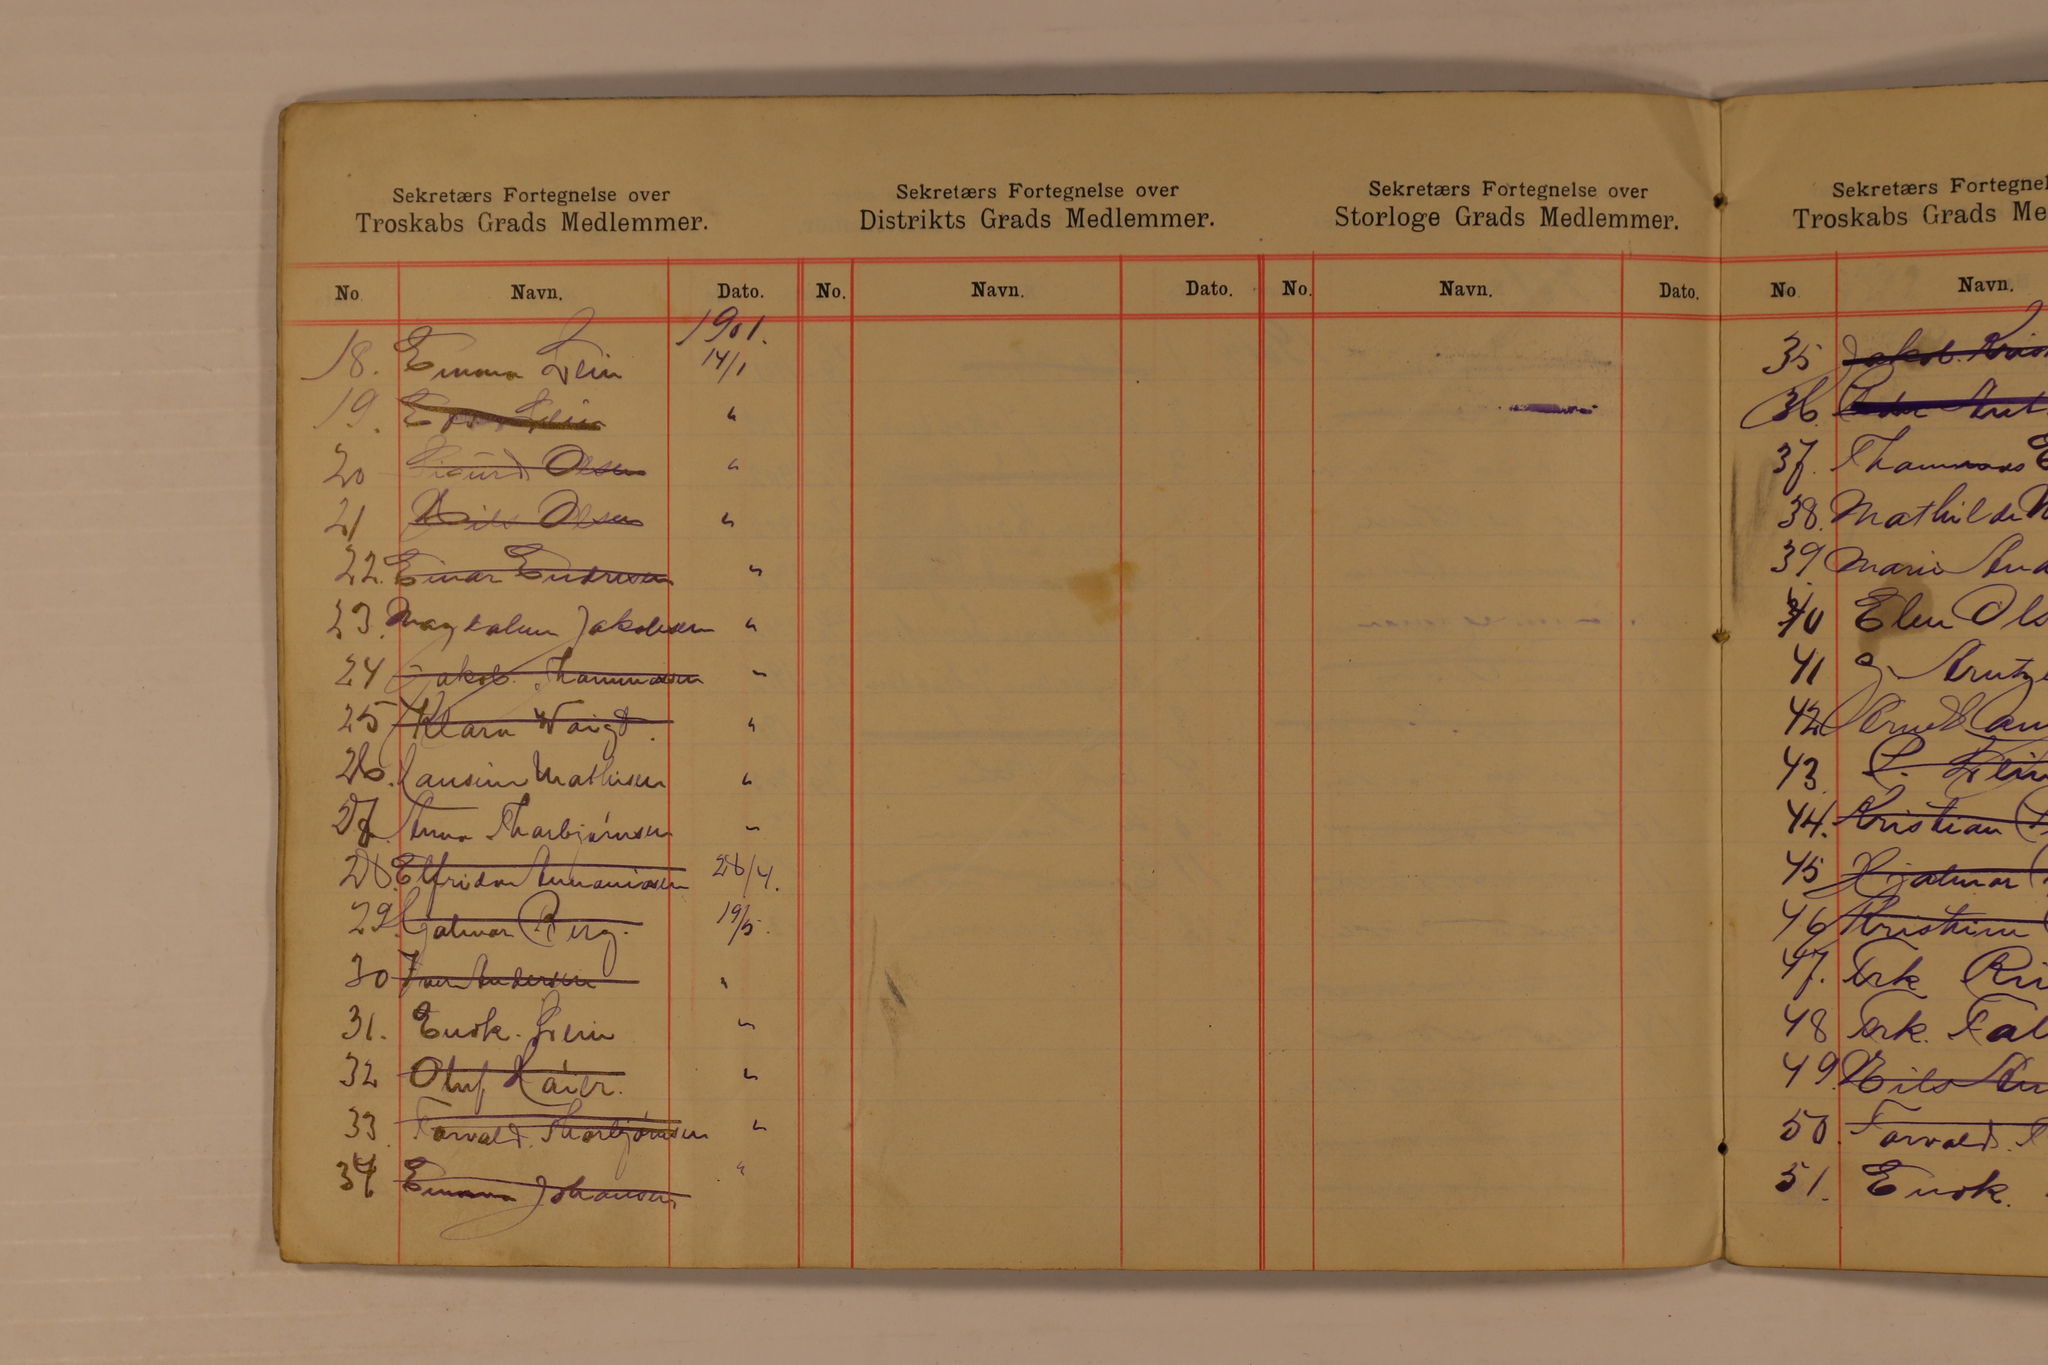 Sekretærs Fortegnelse over
Troskabs Grads Medlemmer.
No. Navn. Dato.
1901.
18. Emma Lein 14/1
19. Lein "
20 Sigurd Olsen "
21 Nils Olsen "
22. Einar Endresen "
23. Magdalene Jakobsen "
24 Jakob. Thommasen "
25 Klara Woigt. "
26. Hansine Mathisen "
27. Anna Thorbjørnsen "
28. Elfrida Annaniasen 28/4.
29. Hjalmar Berg. 19/5.
30 Iver Andersen "
31. Enok. Lein "
32 Oluf Kaier. "
33. Torvald. Thorbjørnsen "
34 Emma Johansen "
Sekretærs Fortegnelse over
Distrikts Grads Medlemmer.
No. Navn. Dato.
Sekretærs Fortegnelse over
Storloge Grads Medlemmer.
No. Navn. Dato.
Sekretærs Fortegnel
Troskabs Grads Me
No Navn.
35 Jakob.
36.
37. Thommas E
38. Mathilde
39 Marie And
40 Elen Ols
41
42
43 Lein
44. Kristian
45 Hjalmar
46 Kristine
47. Frk
48 Frk. Fal
49. Nils An
50. Torvald. T
51. Enok.